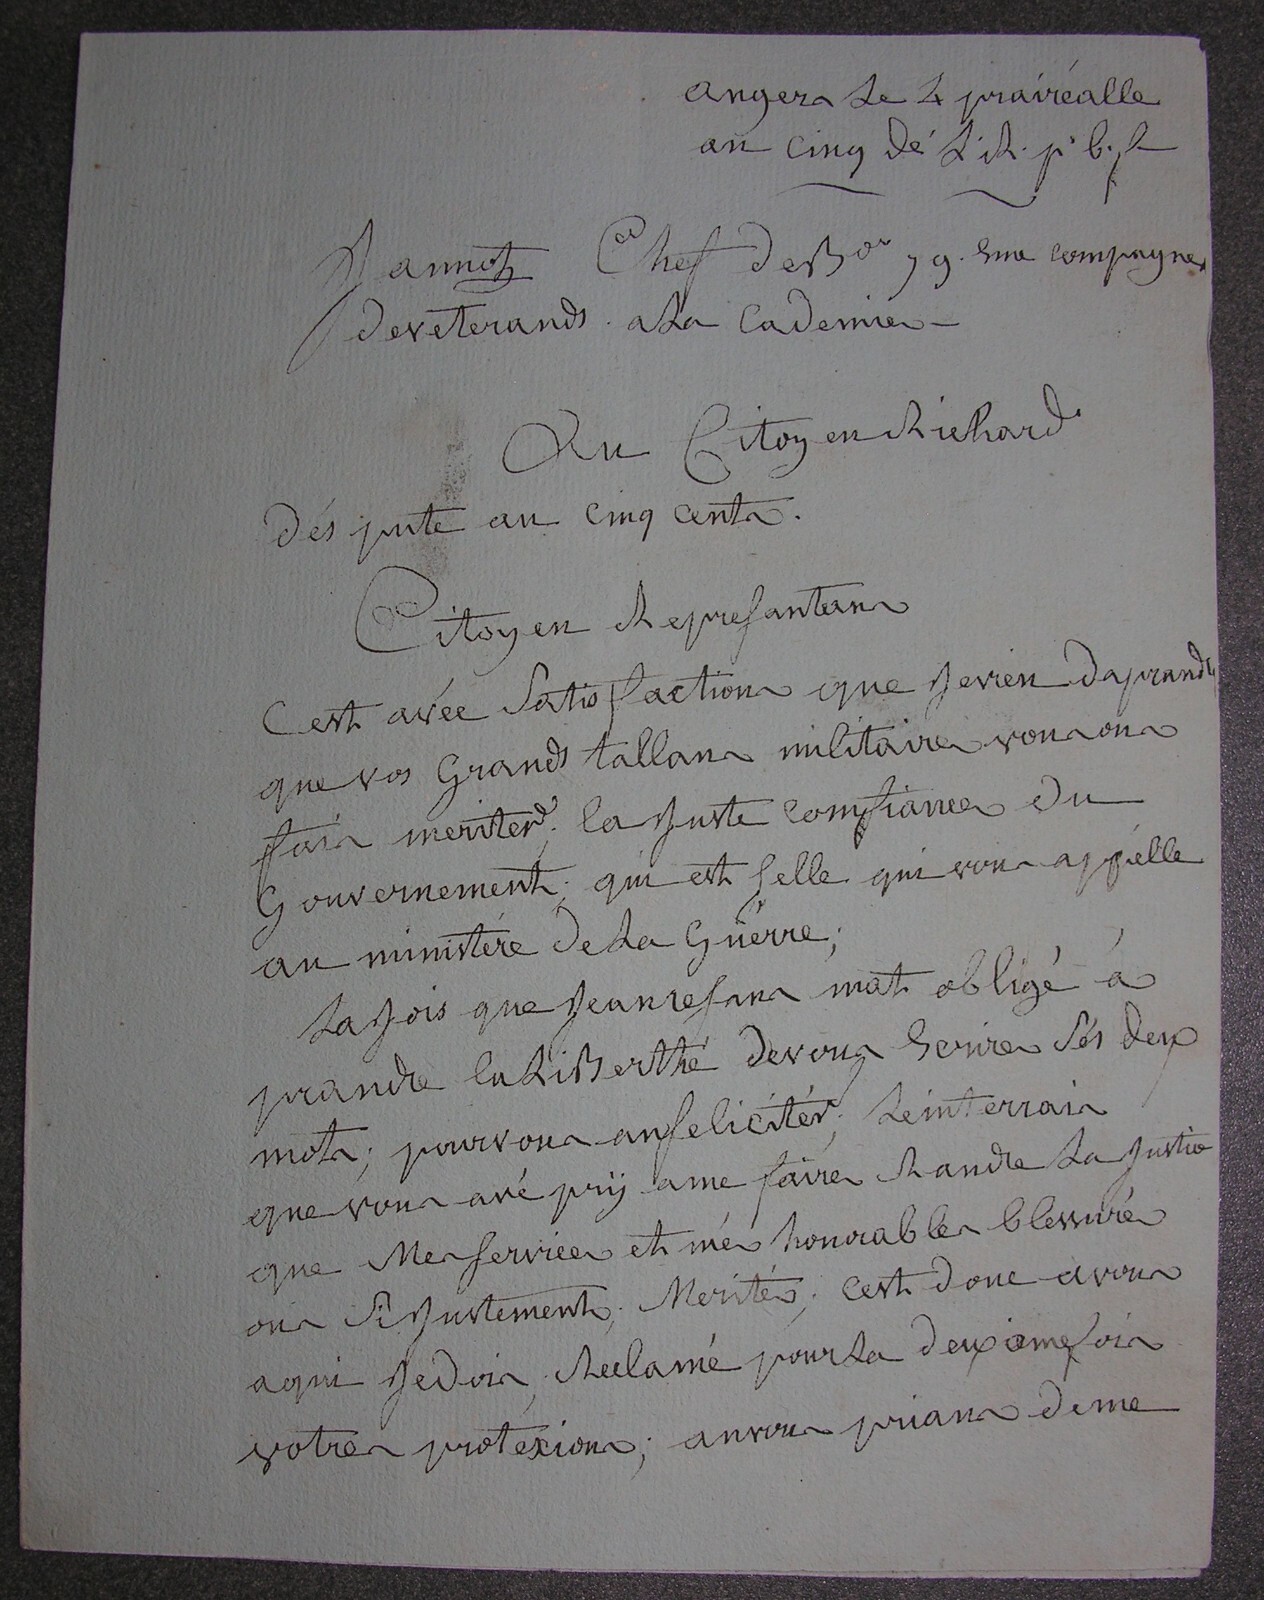 angers le 4 prairéalle
an cinq dé L. R. p. b. f
Jannot Chef de Bon 79. eme compagnes
deveterands. a La Cademies
Au Citoyen Richard
dés pute au cinq cents.
Citoyen Represantans
Cest avéc Satisfactions que Jevien daprands
que vos Grands tallans militaires vous ons
fais meriter; la Juste comfiances du
Gouvernement; qui est selle qui vous appélle
au ministére de La Guérre;
La Jois que Jeanresans mat obligé á
prandre la LiBerthé devous Ecrires Sés deux
mots; pour vous anféliciter; Leinterrais
que vous avé prij a me faires Randre La Justice
que Mes services et més honorables blessurés
ons Si Justement; Merités; cest donc avous
aqui Jedois Reclamé pour La deuxiemefois
votres protéxions; anvous prians deme